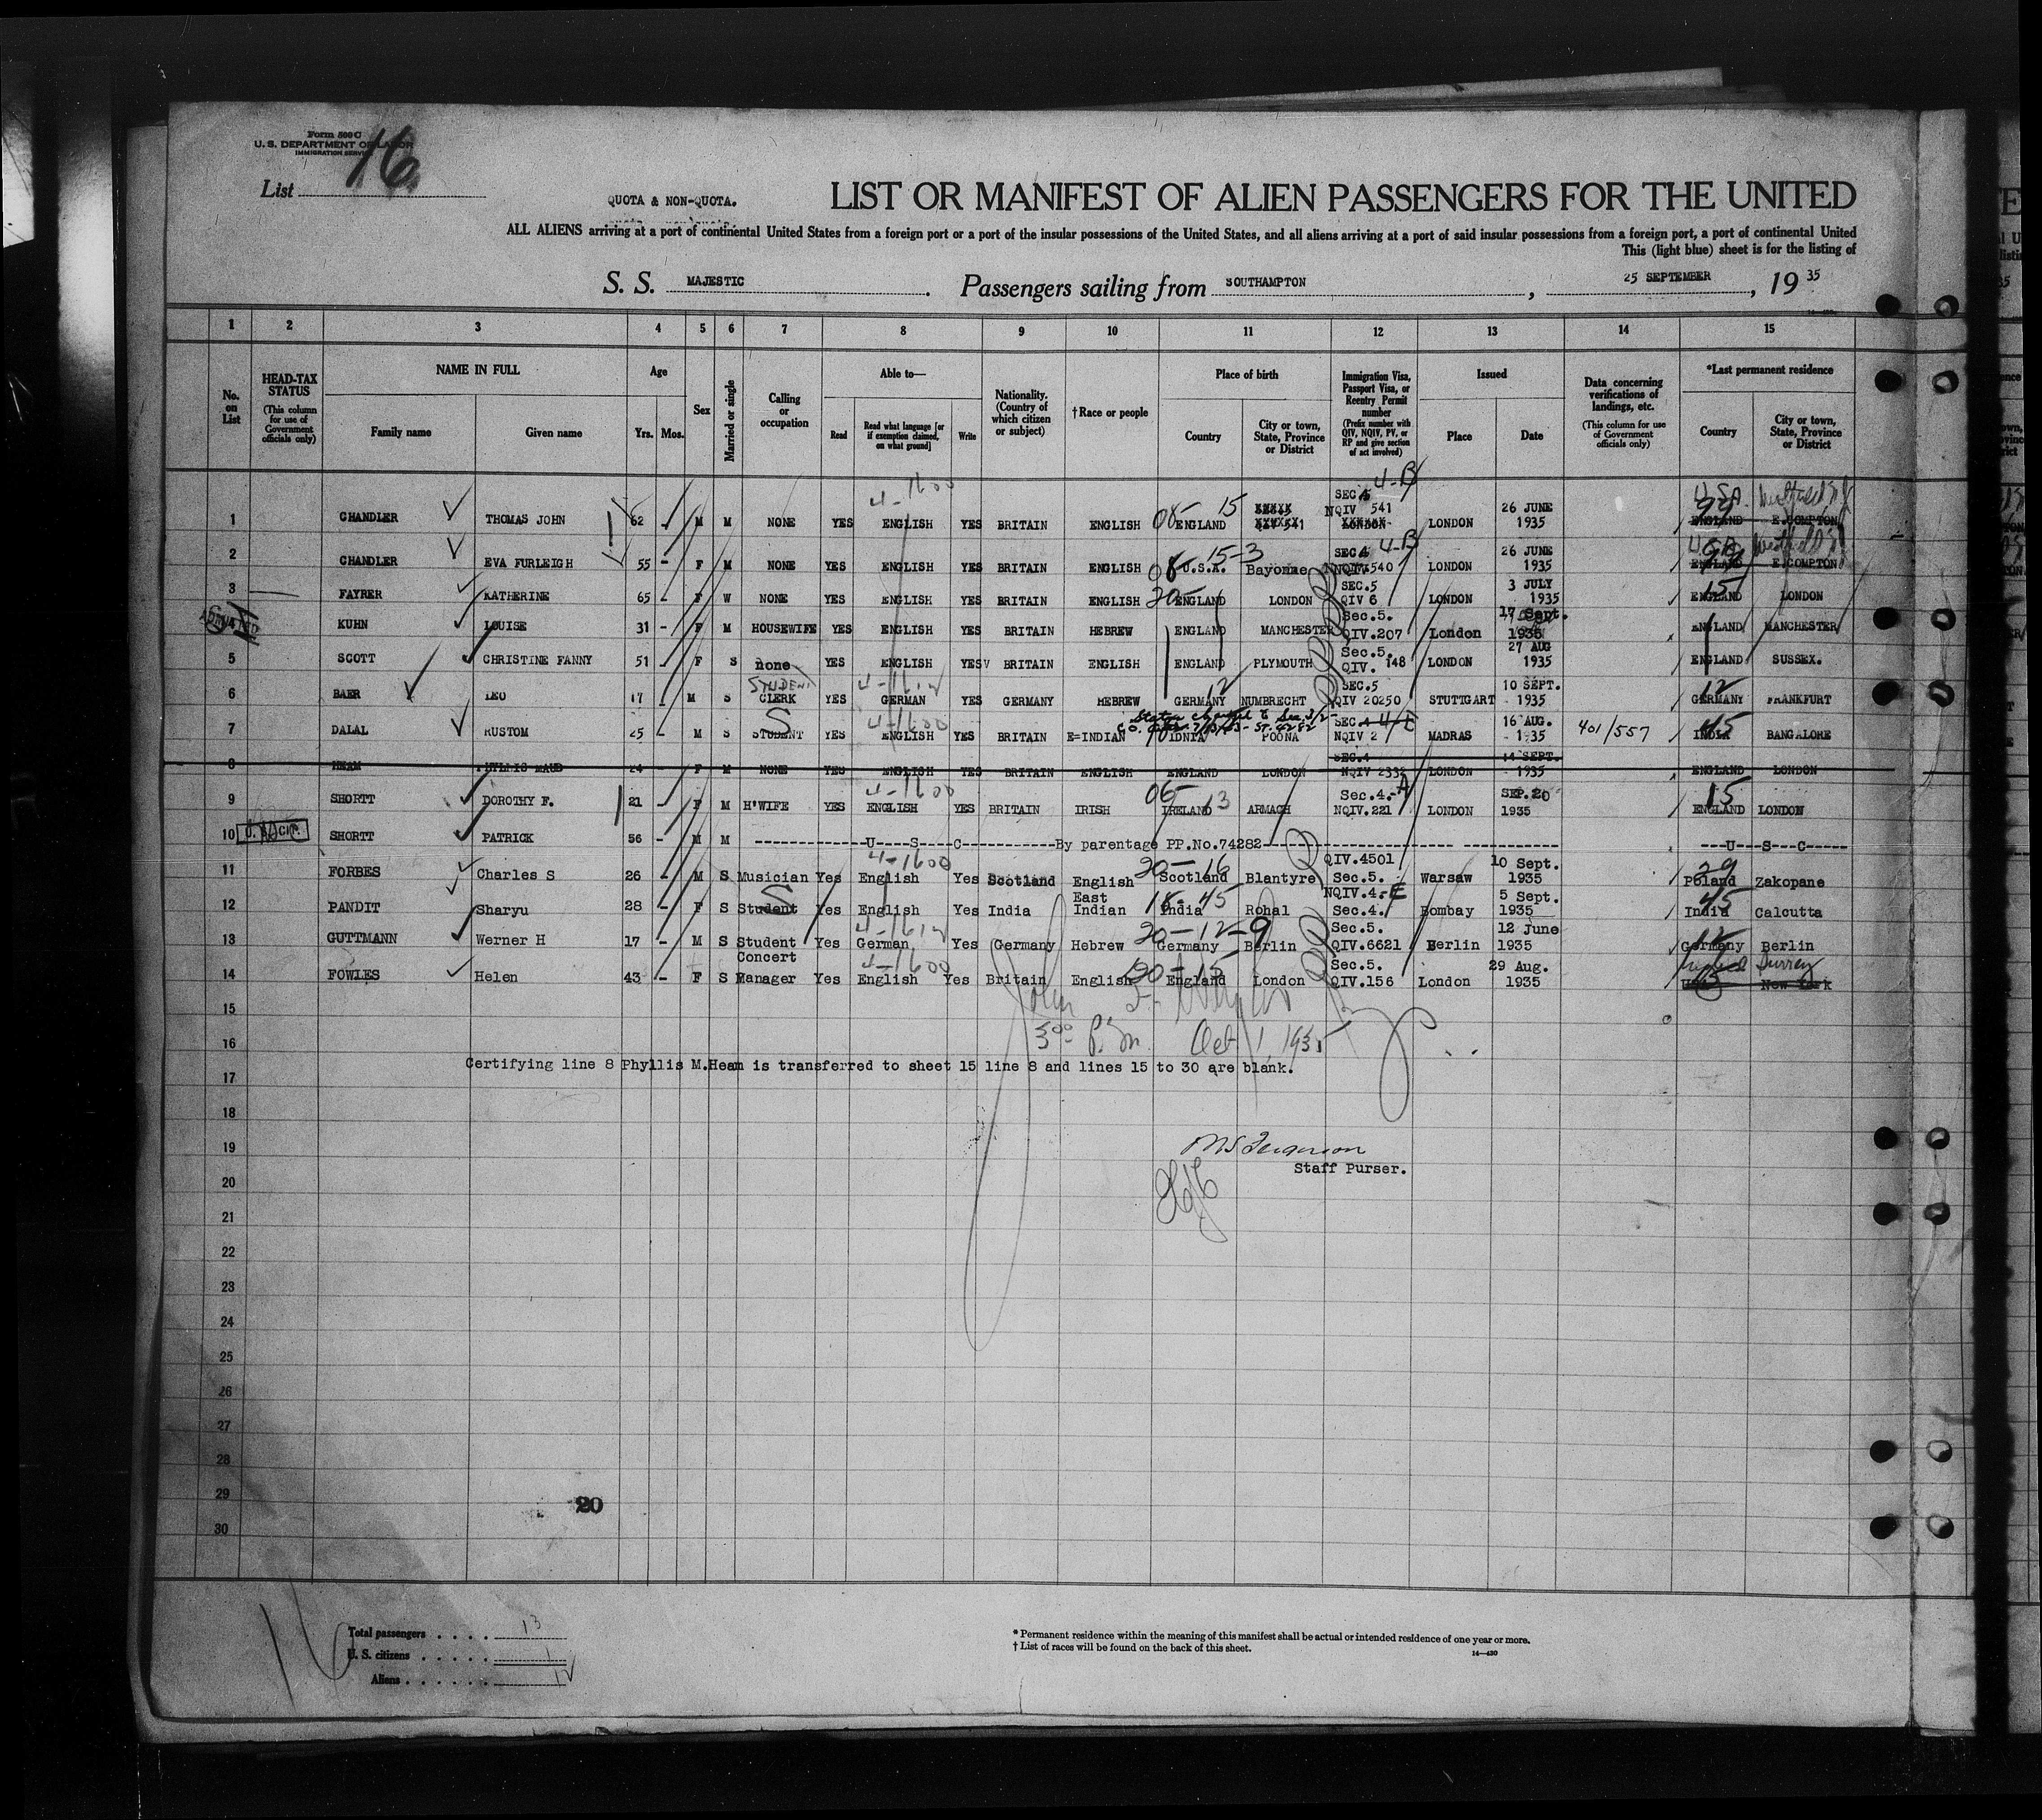 Form 500 C
U. S. DEPARTMENT OF LABOR
IMMIGRATION SERVICE
List 16
QUOTA & NON-QUOTA.
LIST OR MANIFEST OF ALIEN PASSENGERS FOR THE UNITED
ALL ALIENS arriving at a port of continental United States from a foreign port or a port of the insular possessions of the United States, and all aliens arriving at a port of said insular possessions from a foreign port, a port of continental United
This (light blue) sheet is for the listing of
S. S. MAJESTIC. Passengers sailing from SOUTHAMPTON, 25 SEPTEMBER, 19 35
1 2 3 4 5 6 7 8 9 10 11 12 13 14 15
No. on List
HEAD-TAX STATUS (This column for use of Government officials only)
NAME IN FULL
Family name
Given name
Age
Yrs. Mos.
Sex
Married or single
Calling or occupation
Able to—
Read
Read what language [or if exemption claimed, on what ground]
Write
Nationality. (Country of which citizen or subject)
† Race or people
Place of birth
Country
City or town, State, Province or District
Immigration Visa, Passport Visa, or Reentry Permit number (Prefix number with QIV, NQIV, PV, or RP and give section of act involved)
Issued
Place
Date
Data concerning verifications of landings, etc. (This column for use of Government officials only)
*Last permanent residence
Country
City or town, State, Province or District
1 CHANDLER THOMAS JOHN 62 M M NONE YES 4-1600 ENGLISH YES BRITAIN ENGLISH 08 15 ENGLAND SEC 4-B NQIV 541 LONDON 26 JUNE 1935 U.S.A. 99 ENGLAND E.COMPTON
2 CHANDLER EVA FURLEIGH 55 - F M NONE YES ENGLISH YES BRITAIN ENGLISH 08 15-3 U.S.A. Bayonne SEC 4-B NQIV 540 LONDON 26 JUNE 1935 U.S.A. 99 ENGLAND E.COMPTON
3 FAYRER KATHERINE 65 - F W NONE YES ENGLISH YES BRITAIN ENGLISH 20 ENGLAND LONDON SEC.5 QIV 6 LONDON 3 JULY 1935 15 ENGLAND LONDON
ADMITTED
4 KUHN LOUISE 31 - F M HOUSEWIFE YES ENGLISH YES BRITAIN HEBREW ENGLAND MANCHESTER Sec.5. QIV.207 London 17 Sept. 1935 ENGLAND MANCHESTER
5 SCOTT CHRISTINE FANNY 51 - F S none YES ENGLISH YES BRITAIN ENGLISH ENGLAND PLYMOUTH Sec.5. QIV. 148 LONDON 27 AUG 1935 ENGLAND SUSSEX.
6 BAER LEO 17 - M S STUDENT CLERK YES GERMAN YES GERMANY HEBREW 12 GERMANY NUMBRECHT SEC.5 QIV 20250 STUTTGART 10 SEPT. 1935 12 GERMANY FRANKFURT
Status changed to Sec. 3/2-
7 DALAL RUSTOM 25 - M S S STUDENT YES 4-1600 ENGLISH YES BRITAIN E=INDIAN IDNIA POONA SEC.4 4-E NQIV 2 MADRAS 16 AUG. 1935 401/557 45 INDIA BANGALORE
8 HEAM PHYLLIS MAUD 24 - F M NONE YES ENGLISH YES BRITAIN ENGLISH ENGLAND LONDON SEC.4 NQIV 233 LONDON 14 SEPT. 1935 ENGLAND LONDON
9 SHORTT DOROTHY F. 21 F M H'WIFE YES 4-1600 ENGLISH YES BRITAIN IRISH 06 13 IRELAND ARMAGH Sec.4.-A NQIV.221 LONDON SEP.20 1935 15 ENGLAND LONDON
10 U.S. CIT. SHORTT PATRICK 56 - M M ----U----S----C----By parentage PP.No.74282---- ---U---S---C-----
11 FORBES Charles S 26 - M S Musician Yes 4-1600 English Yes Scotland English 20-16 Scotland Blantyre QIV.4501 Sec.5. Warsaw 10 Sept. 1935 29 Poland Zakopane
12 PANDIT Sharyu 28 - F S S Student Yes English Yes India East Indian 18-45 India Rohal NQIV.4.-E Sec.4. Bombay 5 Sept. 1935 45 India Calcutta
13 GUTTMANN Werner H 17 - M S Student Yes German Yes Germany Hebrew 20-12-9 Germany Berlin Sec.5. QIV.6621 Berlin 12 June 1935 12 Germany Berlin
14 FOWLES Helen 43 - F S Concert Manager Yes 4-1600 English Yes Britain English 20-15 England London Sec.5. QIV.156 London 29 Aug. 1935 Surrey 15 New York
15
3:00 P.M. Oct 1, 1935
16
Certifying line 8 Phyllis M.Heam is transferred to sheet 15 line 8 and lines 15 to 30 are blank.
17
18
19
Staff Purser.
20
21
22
23
24
25
26
27
28
29
20
30
16
Total passengers . . . . 13
U. S. citizens . . . . . 1
Aliens . . . . . . 12
* Permanent residence within the meaning of this manifest shall be actual or intended residence of one year or more.
† List of races will be found on the back of this sheet.
14—430